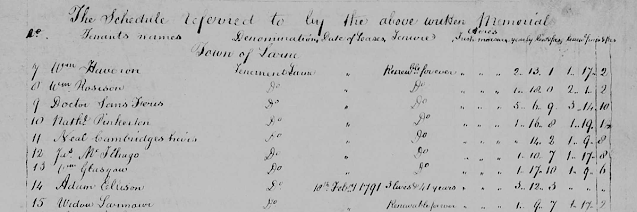 The Schedule referred to by the above written Memorial
No. Tenants names Denominations Date of Leases Tenures Acres Irish measure yearly Rent
Town of Larne
7 Wm Tenement Larne " Renewble forever " " " 2 " 13 " 1 1 " 17 " 2
8 Wm Do " Do " " " 1 " 18 " 0 2 " 1 " 2
9 Doctor Do " Do " " " 5 " 1 " 9 3 " 14 " 10
10 Nathl Pinkerton Do " Do " " " 1 " 16 " 8 1 " 19 "
11 Neal Cambridges heirs Do " Do " " " " 14 " 2 " 9 " 8
12 Jas Mc Do " Do " " " 1 " 10 " 7 1 " 17 " 8
13 Wm Glasgow Do " Do " " " 1 " 17 " 10 1 " 9 " 6
14 Adam Ellison Do 10th Feby 1791 3 lives & 41 years " " " 3 " 12 " 3 " " "
15 Widow Do " Renewable forever " " " 1 " 9 " 7 1 " 17 " 2